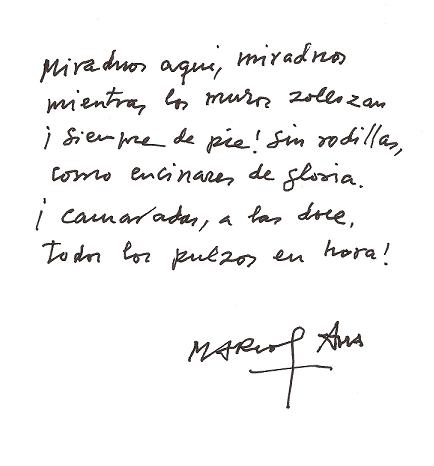 Miradnos aquí, miradnos
mientras los muros sollozan
¡Siempre de pie! Sin rodillas,
como encinares de gloria.
¡Camaradas, a las doce,
todos los pulsos en hora!
MARCOS Ana